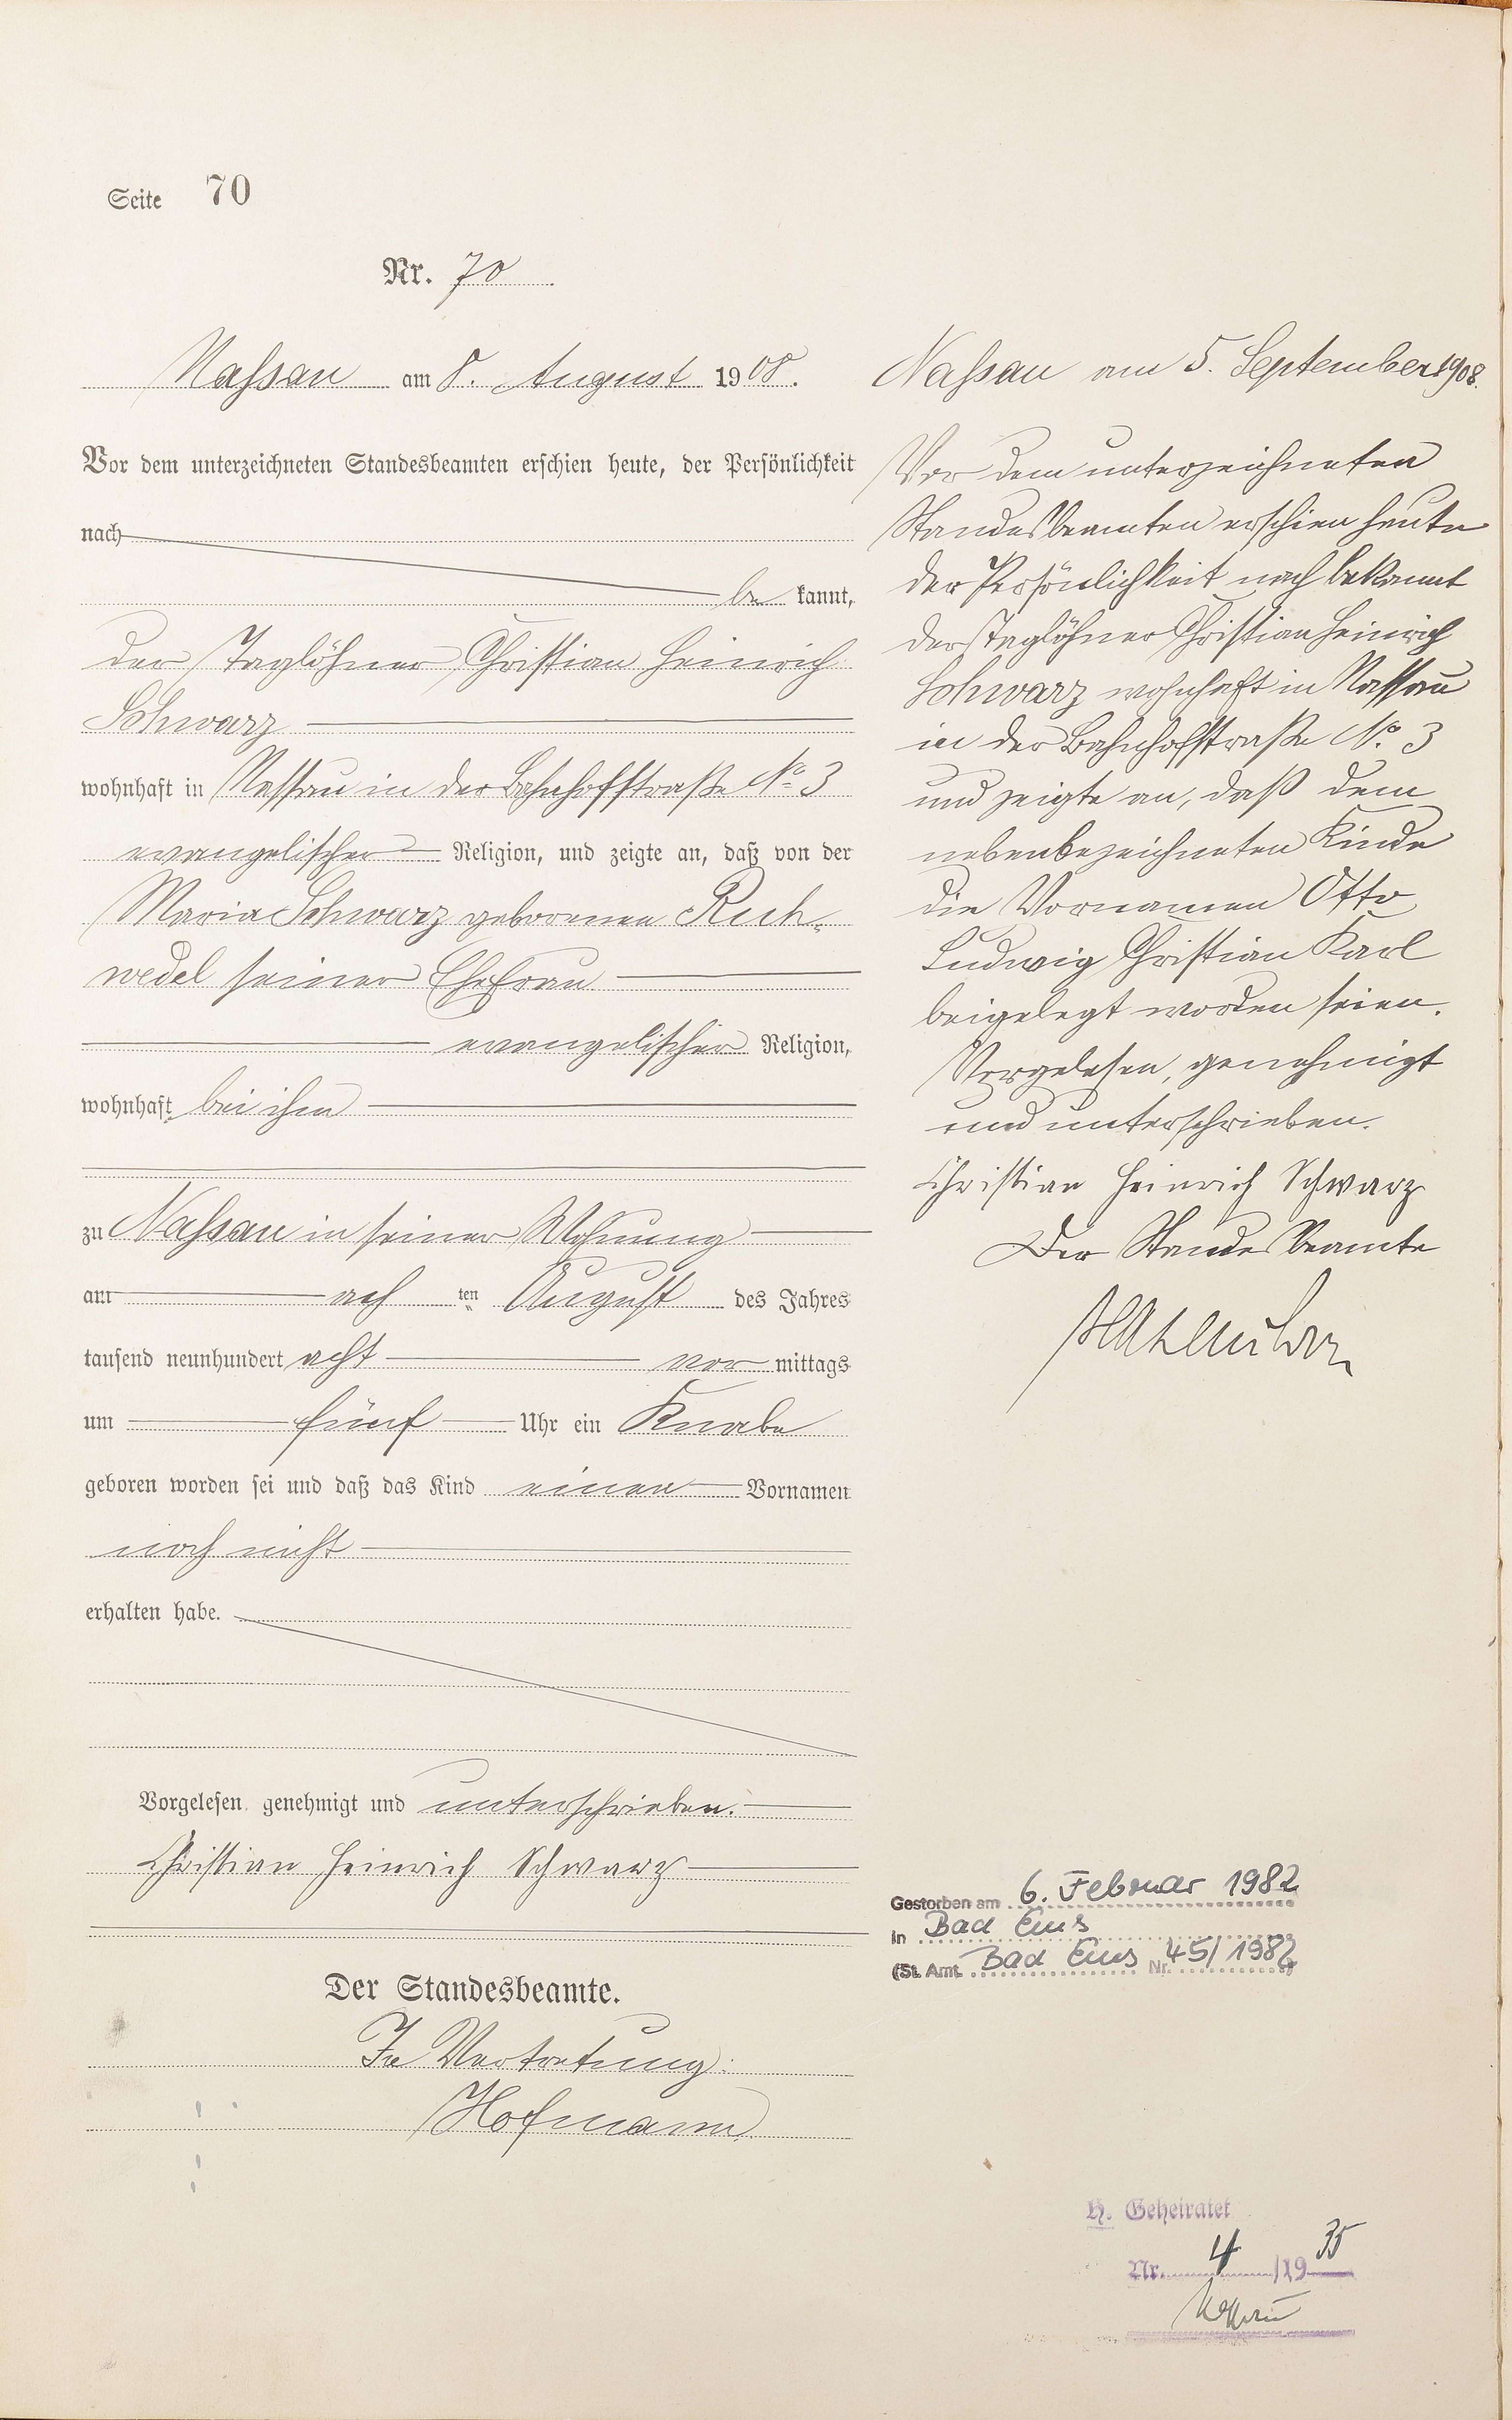 Seite 70
Nr. 70
Nassau am 8. August 1908.
Vor dem unterzeichneten Standesbeamten erschien heute, der Persönlichkeit
nach
be kannt,
der Taglöhner Christian Heinrich
Schwarz
wohnhaft in Nassau in der Bahnhofstraße No 3
evangelischer Religion, und zeigte an, daß von der
Maria Schwarz geborenen Ruck-
wedel seiner Ehefrau
evangelischer Religion,
wohnhaft bei ihm
zu Nassau in seiner Wohnung
am ach ten August des Jahres
tausend neunhundert acht vor mittags
um fünf Uhr ein Knabe
geboren worden sei und daß das Kind einen Vornamen
noch nicht
erhalten habe.
Vorgelesen, genehmigt und unterschrieben.
Christian Heinrich Schwarz
Der Standesbeamte.
In Vertretung:
Hofmann
Nassau am 5. September 1908.
Vor dem unterzeichneten
Standesbeamten erschien heute
der Persönlichkeit nach bekannt
der Taglöhner Christian Heinrich
Schwarz wohnhaft in Nassau
in der Bahnhofstraße No. 3
und zeigte an, daß dem
nebenbezeichneten Kinde
die Vornamen Otto
Ludwig Christian Karl
beigelegt worden seien.
Vorgelesen, genehmigt
und unterschrieben.
Christian Heinrich Schwarz
Der Standesbeamte
Gestorben am 6. Februar 1982
in Bad Ems
(St. Amt Bad Ems Nr. 45/1982
H. Geheiratet
Nr. 4 /1935
Nassau